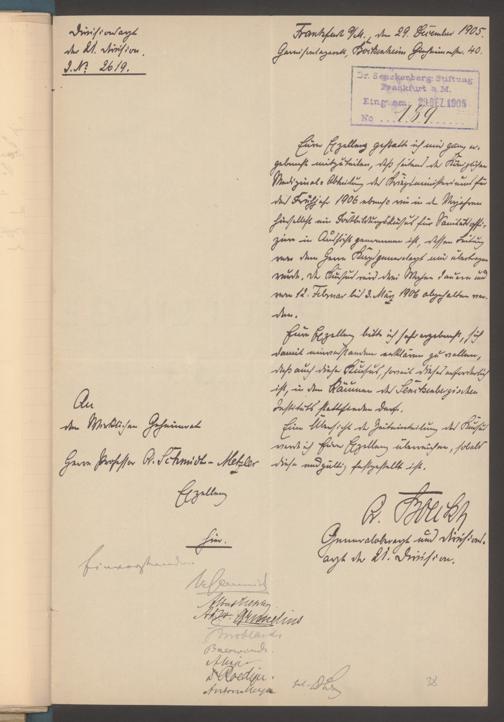 Divisionsarzt
der 21. Division.
J. No 2619.
Frankfurt a/M., den 29. Dezember 1905.
Dr. Senckenberg. Stiftung
Frankfurt a. M.
Eing. am 29. DEZ. 1905
No 189
Eure Exzellenz gestatte ich mir ganz er-
gebenst mitzuteilen, daß seitens der
Medizinal-Abteilung des Kriegsministeriums für
das Frühjahr 1906 ebenso wie in den Vorjahren
hierselbst ein Fortbildungskursus für Sanitätsoffi-
ziere in Aussicht genommen ist, dessen Leitung
von dem Herrn mir übertragen
wurde. Der Kursus wird drei Wochen dauern und
vom 12. Februar bis 3. März 1906 abgehalten wer-
den.
Eure Exzellenz bitte ich sehr ergebenst, sich
damit einverstanden erklären zu wollen,
daß auch dieser Kursus, soweit dieses erforderlich
ist, in den Räumen des Senckenbergischen
Instituts stattfinden darf.
Eine Übersicht der Zeiteinteilung des Kursus
werde ich Eurer Exzellenz überreichen, sobald
diese endgültig festgestellt ist.
An
den Wirklichen Geheimrat
Herrn Professor Dr. Schmidt-Metzler
Exzellenz
hier.
Generaloberarzt und Divisions-
arzt der 21. Division.
Einverstanden.